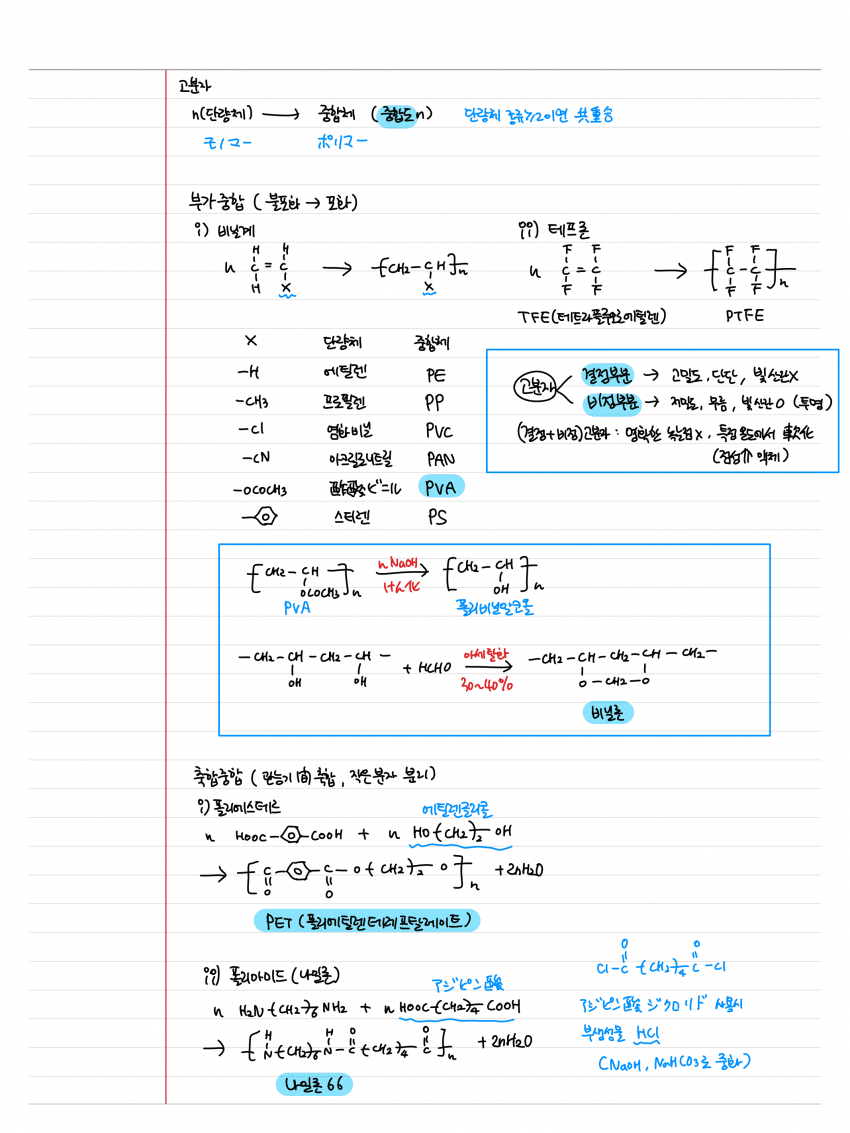 고분자
n(단량체) ⟶ 중합체 (중합도 n) 단량체 종류≥2이면 共重合
モノマー ポリマー
부가중합 ( 불포화 → 포화)
i) 비닐계
H H
n C = C ⟶ [CH2-CH]n
H X X
ii) 테프론
F F F F
n C = C ⟶ [C-C]n
F F F F
TFE(테트라플루오로에틸렌) PTFE
X 단량체 중합체
-H 에틸렌 PE
-CH3 프로필렌 PP
-Cl 염화비닐 PVC
-CN 아크릴로니트릴 PAN
-OCOCH3 酢酸ビニル PVA
스티렌 PS
고분자
결정부분 → 고밀도, 단단, 빛산란X
비정부분 → 저밀도, 무름, 빛산란 O (투명)
(결정+비정)고분자 : 명확한 녹는점 X, 특정온도에서 軟化
(점성↑ 액체)
[CH2-CH]n nNaOH ⟶ [CH2-CH]n
OCOCH3 けん化 OH
PVA 폴리비닐알코올
-CH2-CH-CH2-CH- + HCHO 아세탈화 ⟶ -CH2-CH-CH2-CH-CH2-
OH OH 30~40% O-CH2-O
비닐론
축합중합 ( 관능기 間 축합, 작은분자 분리)
i) 폴리에스테르 에틸렌글리콜
n HOOC--COOH + n HO(CH2)2OH
→ [C--C-O(CH2)2O]n + 2nH2O
O O
PET (폴리에틸렌테레프탈레이트)
ii) 폴리아미드 (나일론) アジピン酸
n H2N(CH2)6NH2 + n HOOC(CH2)4COOH
H H O O
→ [N(CH2)6N-C(CH2)4C]n + 2nH2O
나일론 66
O O
Cl-C(CH2)4C-Cl
アジピン酸ジクロリド 사용시
부생성물 HCl
(NaOH, NaHCO3로 중화)